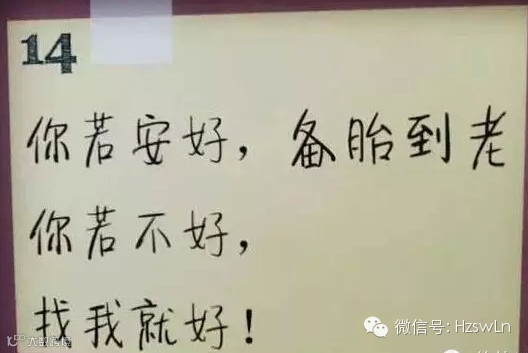 14
你若安好，备胎到老
你若不好，
找我就好！
微信号: HzswLn
大数跨境